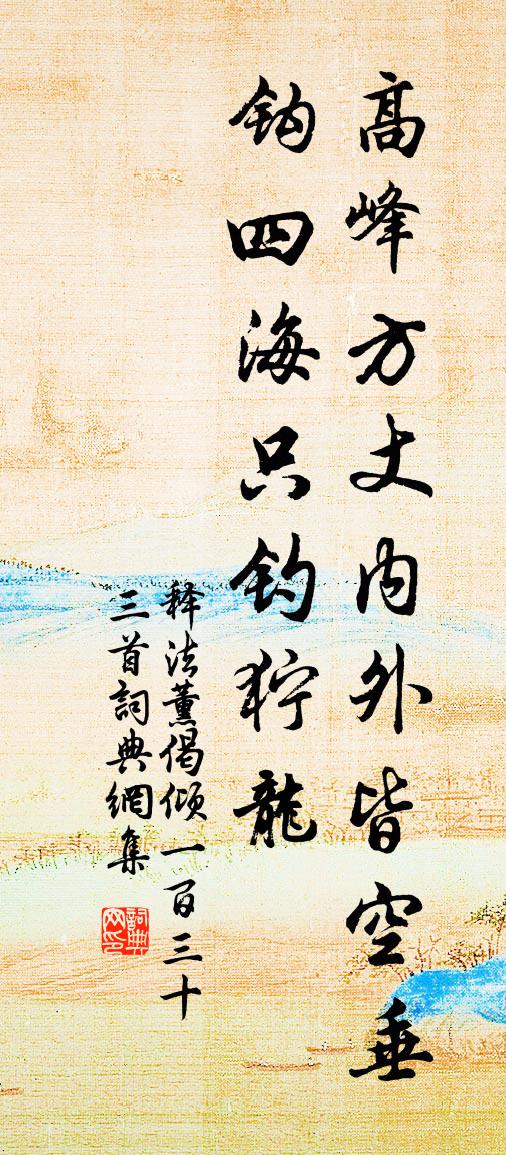 高峰方丈内外皆空垂
钩四海只钓狞龍
释法薰偈倾一百三十
三首詞典網集
詞典
网印